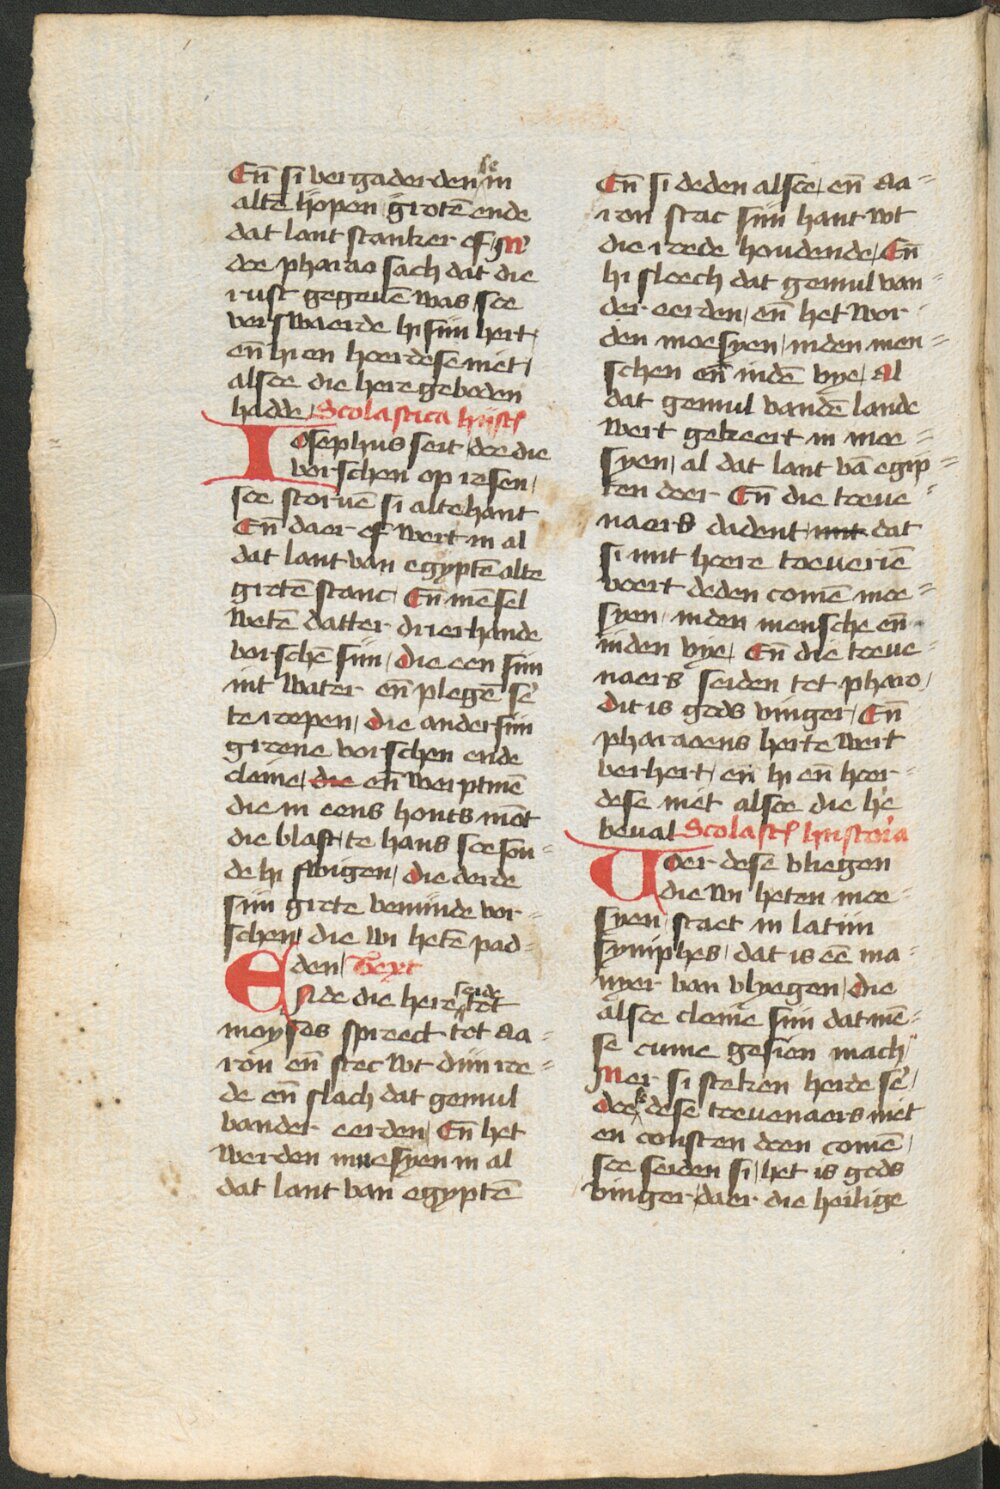 En̄ si vergaderden se in
altē hopen grotē ende
dat lant stanker of / M'
doe pharao sach dat die
rust gegeuē was / soe
verswaerde hi sijn hert /
en̄ hi en hoerdese niet /
alsoe die here geboden
hadde / Scolastica hist'
Iosephus seit / doe die
vorschen op resen /
soe storuē si altehant
En̄ daer of wert in al
dat lant van egyptē alte
grotē stanc / En̄ mē sel
wetē datter drierhande
vorschē sijn / die een sijn
int water en̄ plegē se'
te roepen / die ander sijn
groene vorschen ende
cleine / die en̄ werptmē
die in eens honts mōt
die blaft / te hans soe son-
de hi swigen / die derde
sijn grote veninde vor-
schen / die wi hetē pad-
den / Text
Ende die here seide tot
moyses spreect tot Aa-
ron en̄ stec wt dijn roe-
de en̄ slach dat gemul
vander eerden / En̄ het
werden muesyen in al
dat lant van egyptē
En̄ si deden alsoe / en̄ Aa-
ron stac sijn hant wt
die roede houdende / En̄
hi sloech dat gemul van-
der eerden / en̄ het wor-
den moesyen / inden men-
schen en̄ indē vye / Al
dat gemul vandē lande
wert gekeert in moe-
syen / al dat lant vā egip-
ten doer En̄ die toeue-
naers dadent mit dat
si mit hoere toeueriē
voert deden comē moe-
syen / inden mensche en̄
inden vye / En̄ die toeue-
naers seiden tot pharo /
dit is gods vinger / En̄
pharaoens herte wert
verhert / en̄ hi en̄ hoer-
dese niet alsoe die he'
beual Scolast' historia
Uoer dese vliegen
die wi heten moe-
syen / staet in latijn
syniphes / dat is eē ma-
nyer van vlyegen / die
alsoe cleine sijn datmē
se cume gesien mach /
Mer si steken herde se' /
doe dese toeuenaers niet
en consten doen comē /
soe seiden si / het is gods
vinger / daer die heilige